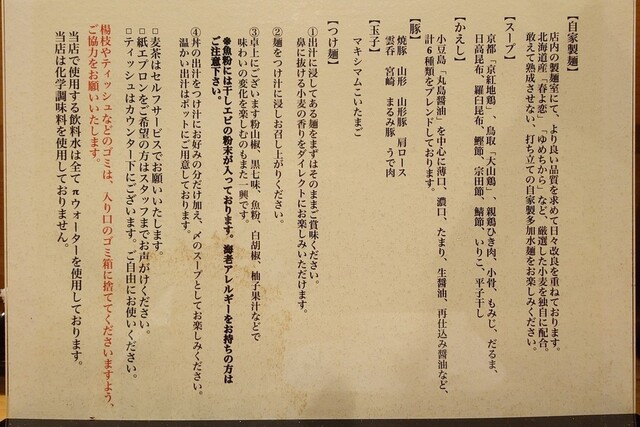 【自家製麺】
店内の製麺室にて、より良い品質を求めて日々改良を重ねております。
北海道産「春よ恋」「ゆめちから」など、厳選した小麦を独自に配合。
敢えて熟成させない、打ち立ての自家製多加水麺をお楽しみください。
【スープ】
京都「京紅地鶏」、鳥取「大山鶏」、親鶏ひき肉、小骨、もみじ、だるま、
日高昆布、羅臼昆布、鰹節、宗田節、鯖節、いりこ、平子干し
【かえし】
小豆島「丸島醤油」を中心に薄口、濃口、たまり、生醤油、再仕込み醤油など、
計6種類をブレンドしております。
【豚】
焼豚 山形 山形豚 肩ロース
雲呑 宮崎 まるみ豚 うで肉
【玉子】
マキシマムこいたまご
【つけ麺】
①出汁に浸してある麺をまずはそのままご賞味ください。
鼻に抜ける小麦の香りをダイレクトにお楽しみいただけます。
②麺をつけ汁に浸しお召し上がりください。
③卓上にございます粉山椒、黒七味、魚粉、白胡椒、柚子果汁などで
味わいの変化を楽しむのもまた一興です。
※魚粉には干しエビの粉末が入っております。海老アレルギーをお持ちの方は
ご注意下さい。
④丼の出汁をつけ汁にお好みの分だけ加え、〆のスープとしてお楽しみください。
温かい出汁はポットにご用意しております。
□麦茶はセルフサービスでお願いいたします。
□紙エプロンをご希望の方はスタッフまでお声がけください。
□ティッシュはカウンター下にございます。ご自由にお使いください。
楊枝やティッシュなどのゴミは、入り口のゴミ箱に捨ててくださいますよう、
ご協力をお願いいたします。
当店で使用する飲料水は全てπウォーターを使用しております。
当店は化学調味料を使用しておりません。